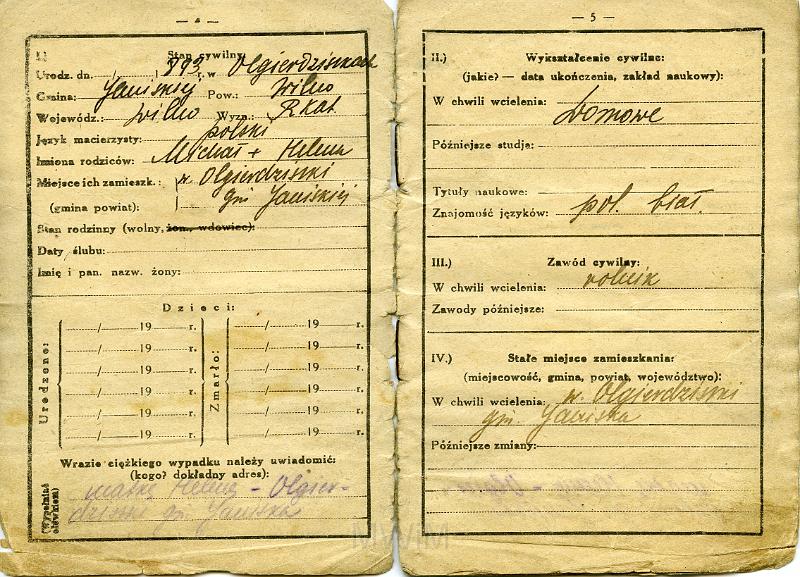 — 4 —
I.) Stan cywilny:
Urodz. dn. / 1893 r. w Olgierdziszkach
Gmina: Janiskiej Pow.: Wilno
Wojewódz.: Wilno Wyzn.: Rkat
Język macierzysty: polski
Imiona rodziców: Michał + Helena
Miejsce ich zamieszk.: w. Olgierdziszki
(gmina powiat): gm Janiskiej
Stan rodzinny (wolny, żon., wdowiec):
Daty ślubu:
Imię i pan. nazw. żony:
Dzieci:
Urodzone:
/ 19 r.
/ 19 r.
/ 19 r.
/ 19 r.
/ 19 r.
/ 19 r.
Zmarło:
/ 19 r.
/ 19 r.
/ 19 r.
/ 19 r.
/ 19 r.
/ 19 r.
Wrazie ciężkiego wypadku należy uwiadomić:
(kogo? dokładny adres):
matkę Helenę - Olgier-
dziszki gm Janiszka
(Wypełniać ołówkiem)
— 5 —
II.) Wykształcenie cywilne:
(jakie? — data ukończenia, zakład naukowy):
W chwili wcielenia: Domowe
Późniejsze studja:
Tytuły naukowe:
Znajomość języków: pol. biał.
III.) Zawód cywilny:
W chwili wcielenia: rolnik
Zawody późniejsze:
IV.) Stałe miejsce zamieszkania:
(miejscowość, gmina, powiat, województwo):
W chwili wcielenia: w. Olgierdziszki
gm. Janiszka
Późniejsze zmiany:
MWM